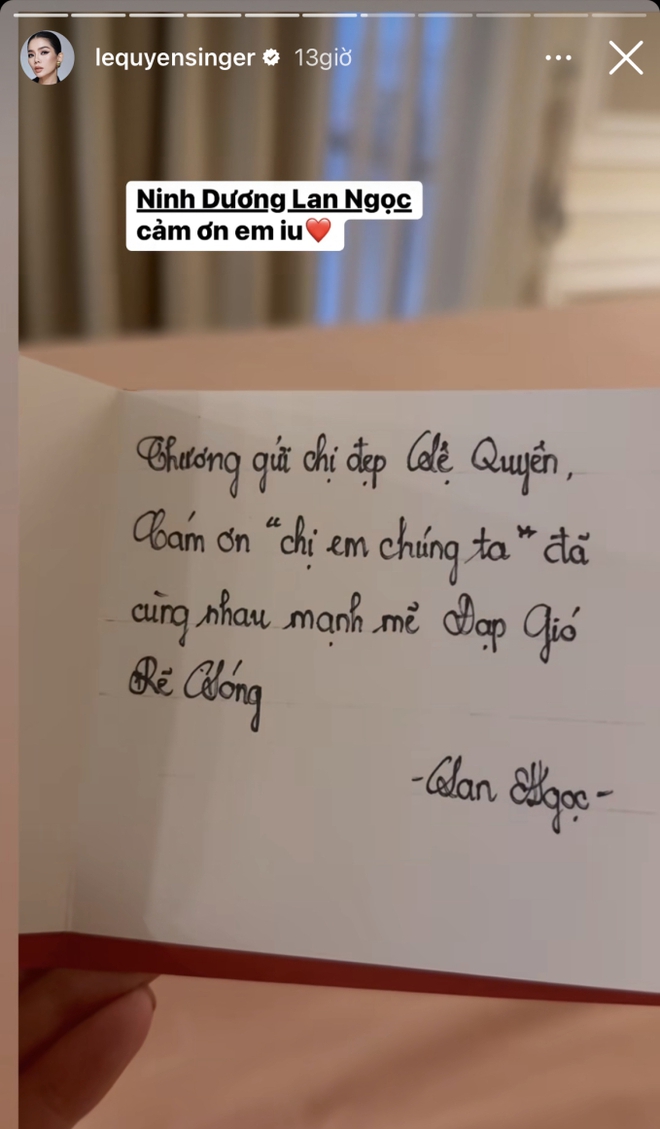 lequyensinger 13giờ
Ninh Dương Lan Ngọc
cảm ơn em iu❤️
Thương gửi chị đẹp Lệ Quyền,
Cám ơn "chị em chúng ta" đã
cùng nhau mạnh mẽ Đạp Gió
Rẽ Sóng
-Lan Ngọc-